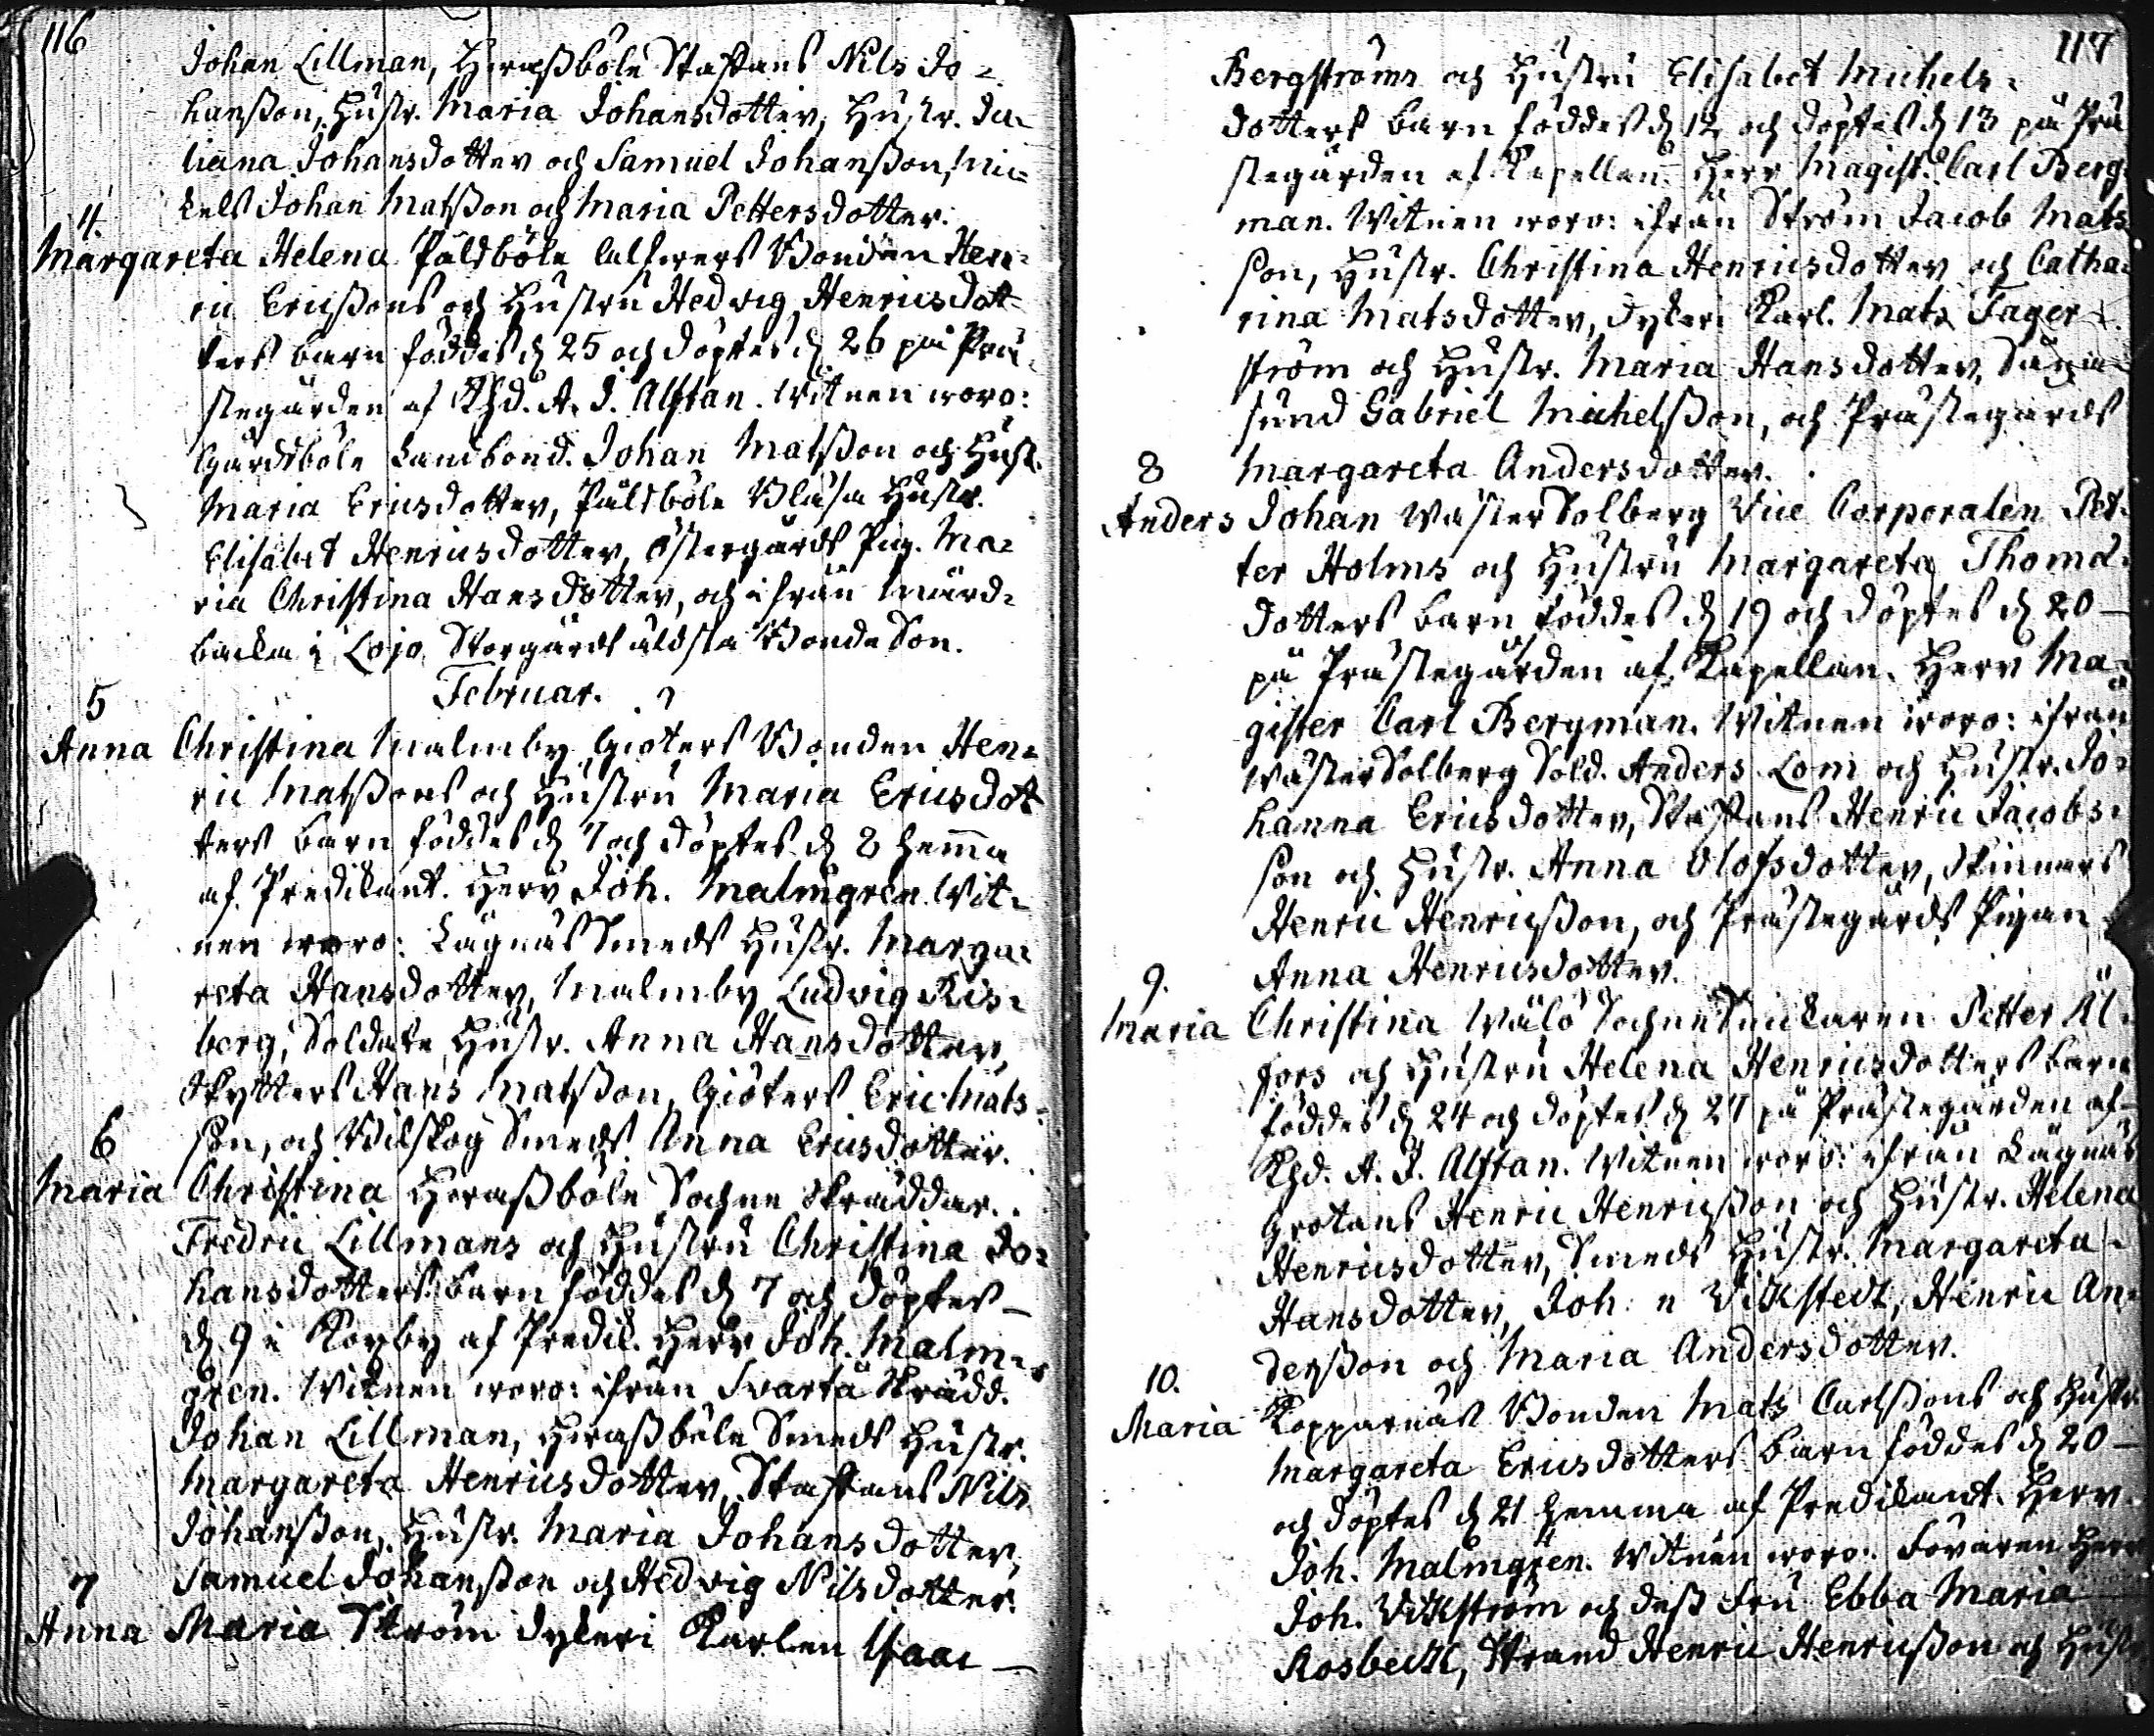 116
Johan Lillman, Heraßböle Staffans Nils Jo=
hanßon, Hustr. Maria Johansdotter, Hustr. Ju=
liana Johansdotter och Samuel Johanßon, Mic=
kels Johan Matßon och Maria Pettersdotter.
4.
Margareta Helena Påldböle Bonden Hen=
ric Ericßons och Hustru Hedvig Henricsdot=
ters barn föddes d. 25 och döptes d. 26 på Prä=
stegården af Khd. A. J. Alftan. Witnen woro:
Gårdsböle Landbond. Johan Matßon och Hust.
Maria Ericsdotter, Påldböle Hustr.
Elisabet Henricsdotter, Östergårds Pig. Ma=
ria Christina Hansdotter, och ifrån
backa i Lojo, Storgårds äldsta Bonde Son.
Februar.
5
Anna Christina Malmby Giöters Bonden Hen=
ric Matßons och Hustru Maria Ericsdot
ters barn föddes d. 7 och döptes d. 8 hemma
af Predikant. Herr Joh. Malmgren. Wit=
nen woro: Lågnäs Smeds Hustr. Marga=
reta Hansdotter, Malmby Ludvig Ris=
berg, Soldate Hustr. Anna Hansdotter,
Skytters Hans Matßon, Giöters Eric Mats=
son, och Smeds Anna Ericsdotter.
6
Maria Christina Heraßböle Sochne Skräddar.
Fredric Lillmans och Hustru Christina Jo=
hansdotters barn föddes d. 7 och döptes
d. 9 i Köpby af Predik. Herr Joh. Malm=
gren. Witnen woro: ifrån Svartå Skrädd.
Johan Lillman, Heraßböle Smeds Hustr.
Margareta Henricsdotter, Staffans Nils
Johanßon, Hustr. Maria Johansdotter,
Samuel Johanßon och Hedvig Nilsdotter.
7
Anna Maria Ström dykeri Karlen Isaac
117
Bergströms och Hustru Elisabet Michels=
dotters barn föddes d. 12 och döptes d. 13 på Prä
stegården af Kapellan. Herr Magist. Carl Berg=
man. Witnen woro: ifrån Ström Jacob Mats
son, Hustr. Christina Henricsdotter och Catha=
rina Matsdotter, dykeri Karl. Mats Fager=
ström och Hustr. Maria Hansdotter,
sund Gabriel Michelßon, och Prästegårds
Margareta Andersdotter.
8
Anders Johan WästerSolberg Vice Corporalen Pet=
ter Holms och Hustru Margareta Thomæ
dotters barn föddes d. 19 och döptes d. 20
på Prästegården af Kapellan. Herr Ma=
gister Carl Bergman. Witnen woro: ifrån
WästerSolberg Sold. Anders Lom och Hustr. Jo=
hanna Ericsdotter, Staffans Henric Jacobs=
son och Hustr. Anna Olofsdotter, Skinnars
Henric Henricßon, och Prästegårds Pigan
Anna Henricsdotter.
9.
Maria Christina Wälö Sochne Snickaren Petter Äl=
fors och Hustru Helena Henricsdotters barn
föddes d. 24 och döptes d. 27 på Prästegården af
Khd. A. J. Alftan. Witnen woro: ifrån Lågnäs
Grotans Henric Henricßon och Hustr. Helena
Henricsdotter, Smeds Hustr. Margareta
Hansdotter, Joh. n Vickstedt, Henric An=
derßon och Maria Andersdotter.
10.
Maria Kopparnäs Bonden Mats Carlßons och Hustr.
Margareta Ericsdotters barn föddes d. 20
och döptes d. 21 hemma af Predikant. Herr
Joh. Malmgren. Witnen woro: Herr
Joh. Vickström och deß Fru Ebba Maria
Rosbeck, Strand Henric Henricßon och Hustr